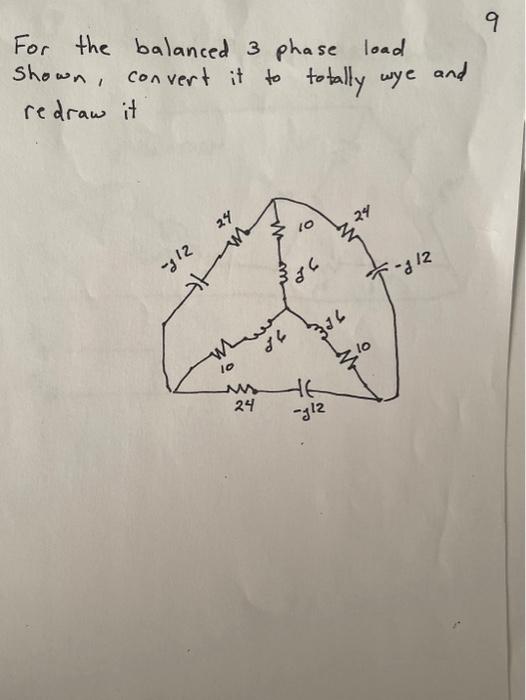 9
For the balanced 3 phase load
Shown, convert it to totally wye and
redraw it
24
10
24
-j12
j6
-j12
j6
j6
10
10
24
-j12